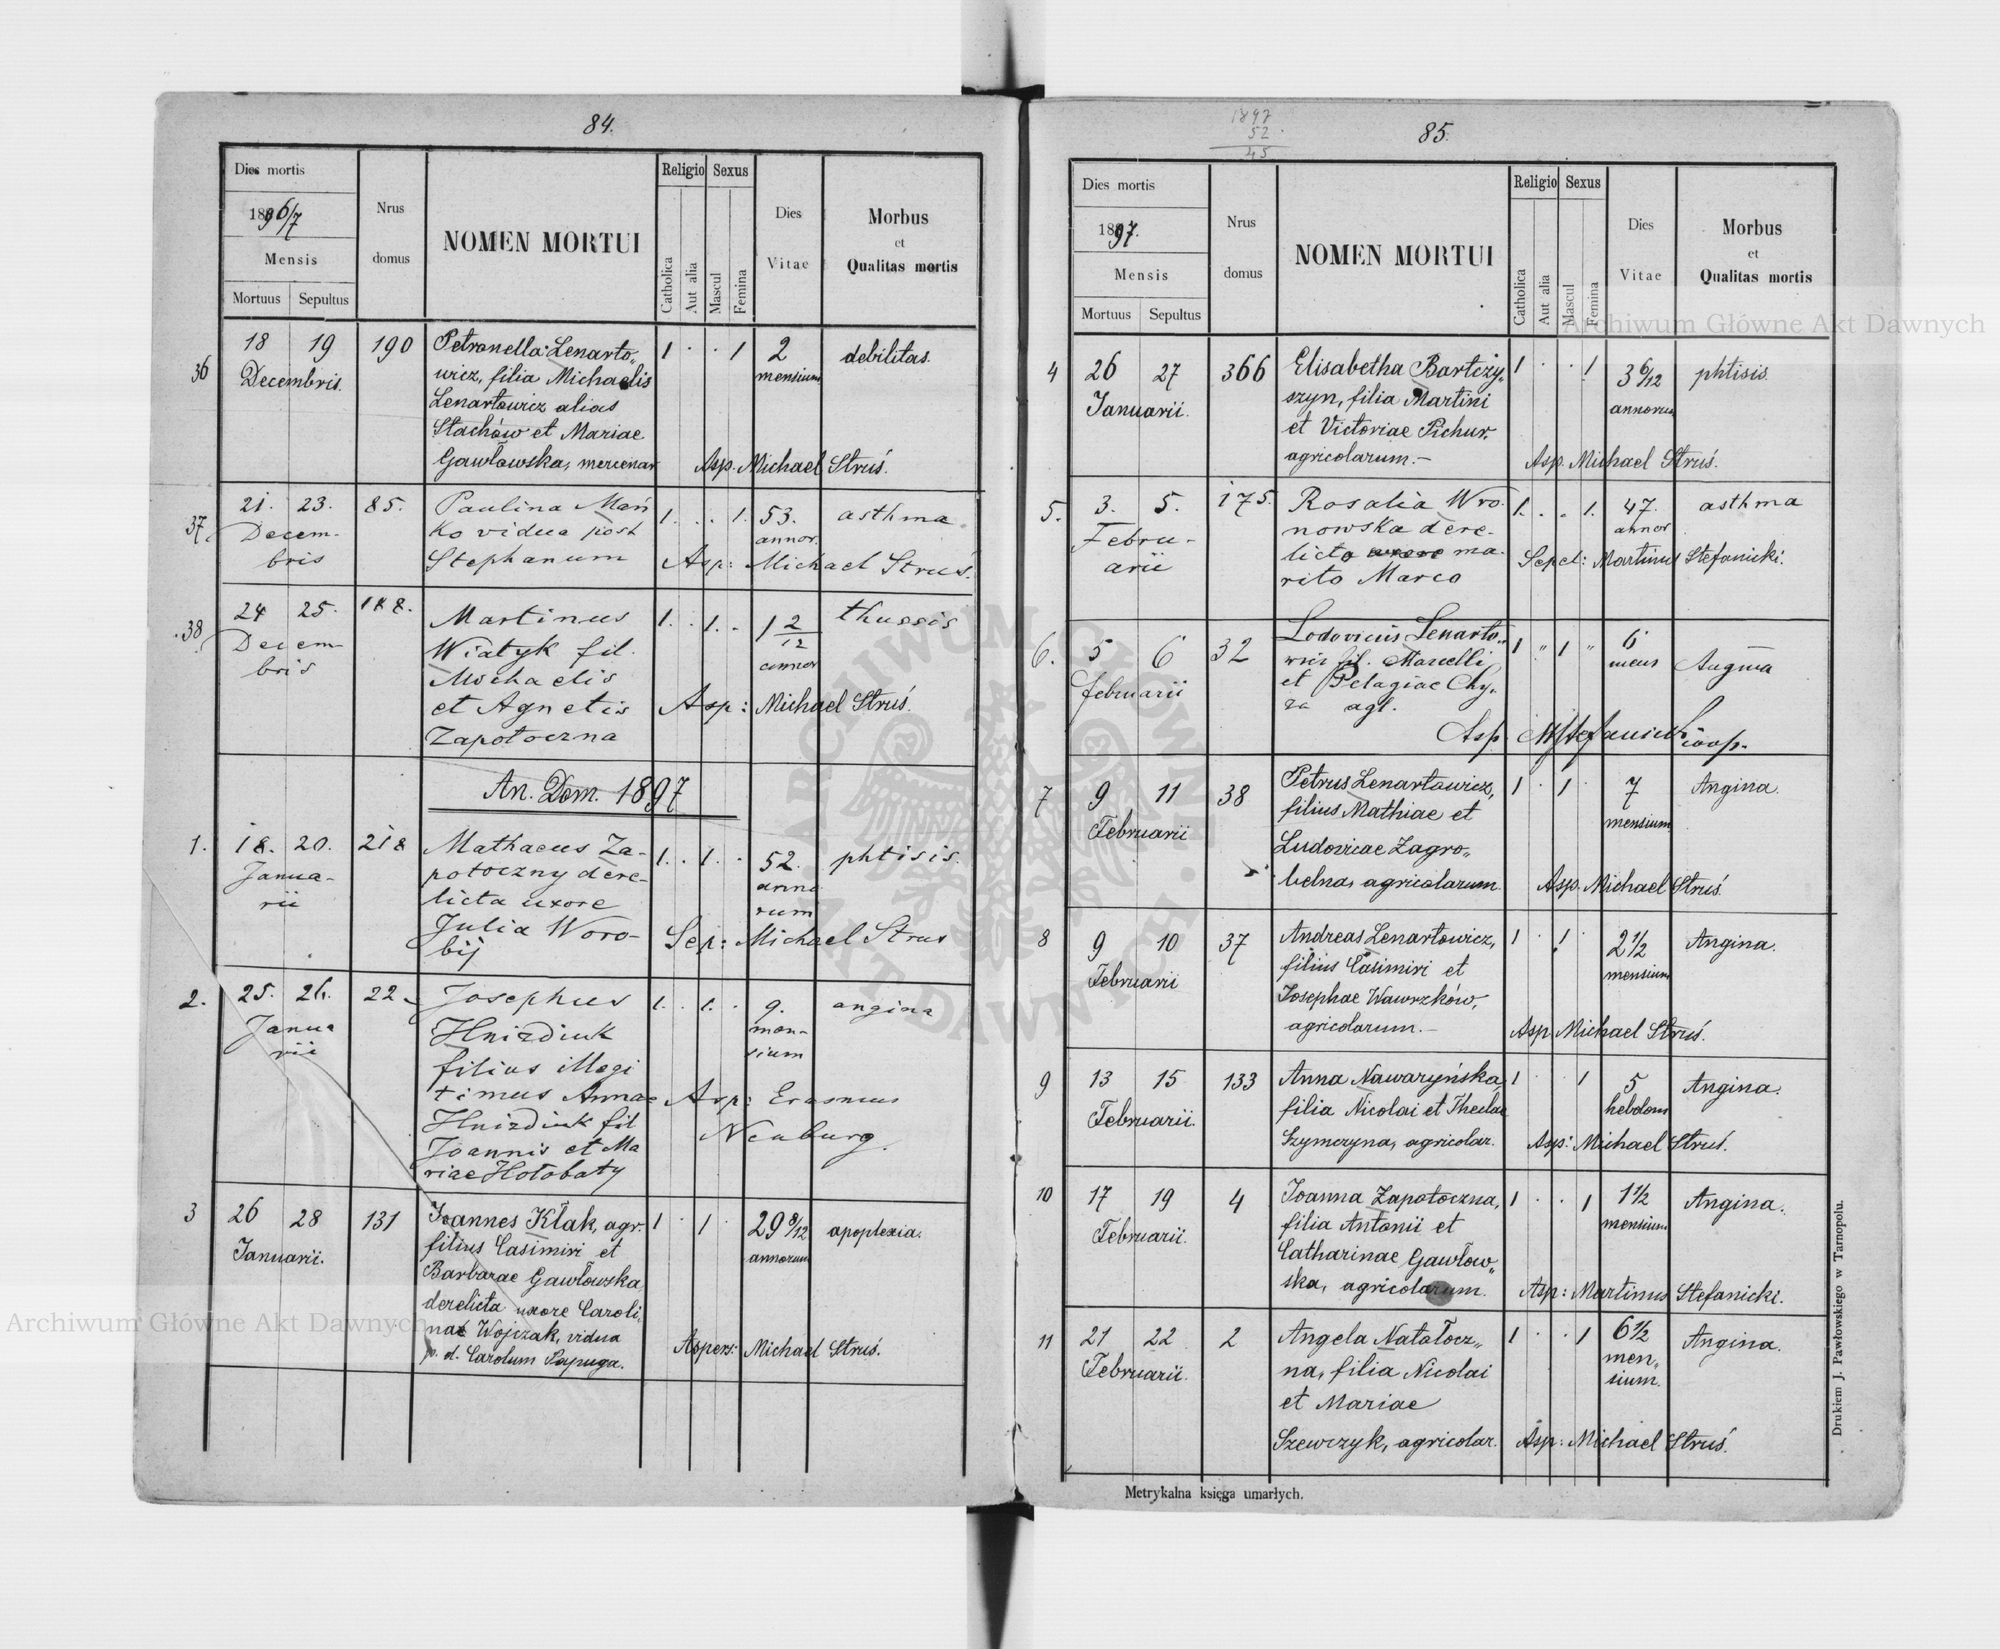 84.
Dies mortis
1896/7
Mensis
Mortuus Sepultus
Nrus
domus
NOMEN MORTUI
Religio Sexus
Catholica
Aut alia
Mascul
Femina
Dies
Vitae
Morbus
et
Qualitas mortis
36 18 19 190 Petronella Lenarto„ 1 · · 1 2 debilitas.
Decembris. wicz, filia Michaelis mensium
Lenartowicz alias
Stachów et Mariae
Gawłowska, mercenar Asp. Michael Struś.
37. 21. 23. 85. Paulina Mań 1. . . 1. 53. asthma.
Decem- ko vidua post annor.
bris Stephanum Asp: Michael Struś.
38 24 25. 188. Martinus 1. . 1. . 1 2/12 thussis
Decem- Wiatyk fil. annor
bris Michaelis
et Agnetis Asp: Michael Struś.
Zapotoczna
An. Dom. 1897
1. 18. 20. 218 Mathaeus Za- 1. . 1. . 52. phtisis.
Janua- potoczny dere- anno
rii licta uxore rum
Julia Woro- Sep: Michael Strus
bij
2. 25. 26. 22. Josephus 1. . 1. . 9. angina
Janua Hnizdiuk men-
rii filius illegi sium
timus Annae Asp: Erasmus
Hnizdiuk fil Neuburg.
Joannis et Ma
riae Hołobaty
3 26 28 131 Joannes Kłak, agr. 1 · 1 · 29 8/12 apoplexia.
Januarii. filius Casimiri et annorum
Barbarae Gawłowska
derelicta uxore Caroli„
nae Wojczak, vidua
p. d. Carolum Papuga. Aspers: Michael Struś.
1897
52
45
85.
Dies mortis
1897.
Mensis
Mortuus Sepultus
Nrus
domus
NOMEN MORTUI
Religio Sexus
Catholica
Aut alia
Mascul
Femina
Dies
Vitae
Morbus
et
Qualitas mortis
4 26 27 366 Elisabetha Bartczy„ 1 · · 1 3 6/12 phtisis.
Januarii. szyn, filia Martini annorum
et Victoriae Pichur,
agricolarum.– Asp. Michael Struś.
5. 3. 5. 175. Rosalia Wro- 1. . . 1. 47. asthma
Febru- nowska dere- annor
arii licta uxore ma- Sepel: Martinus Stefanicki.
rito Marco
6. 5 6 32 Lodovicus Lenarto„ 1 " 1 " 6 Angina
februarii wicz fil. Marcelli mens
et Pelagiae Chy„
za agl.
Asp MStefanicki coop.
7 9 11 38 Petrus Lenartowicz, 1 · 1 · 7 Angina.
Februarii filius Mathiae et mensium
Ludovicae Zagro„
belna, agricolarum. Asp. Michael Struś
8 9 10 37 Andreas Lenartowicz, 1 · 1 · 2 1/2 Angina.
Februarii filius Casimiri et mensium
Josephae Wawrzków,
agricolarum.– Asp Michael Struś.
9 13 15 133 Anna Nawaryńska, 1 · · 1 5 Angina.
Februarii. filia Nicolai et Theclae hebdom
Szymczyna, agricolar. Asp: Michael Struś.
10 17 19 4 Joanna Zapotoczna, 1 · · 1 1 1/2 Angina.
Februarii. filia Antonii et mensium
Catharinae Gawłow„
ska, agricolarum. Asp: Martinus Stefanicki.
11 21 22 2 Angela Natałocz„ 1 · · 1 6 1/2 Angina.
Februarii. na, filia Nicolai men„
et Mariae sium.
Szewczyk, agricolar. Asp: Michael Struś.
Metrykalna księga umarłych.
Drukiem J. Pawłowskiego w Tarnopolu.
Archiwum Główne Akt Dawnych
Archiwum Główne Akt Dawnych
ARCHIWUM GŁÓWNE AKT DAWNYCH